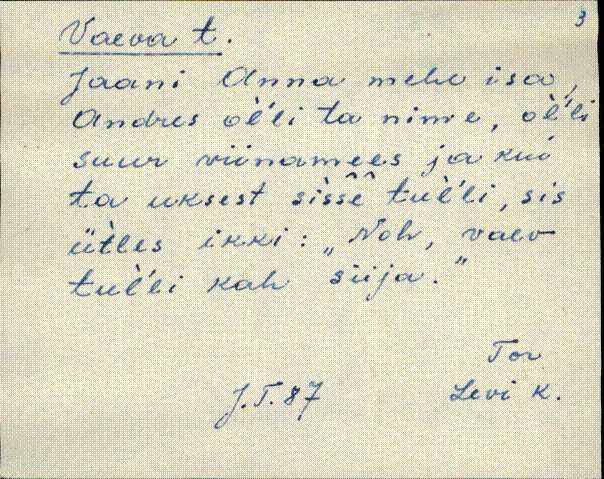 3
Vaeva t.
Jaani Anna mehe isa,
Andres òĺli ta nime, òĺli
suur viinamees ja kui
ta uksest sìssê̂ tuĺli, sis
ütles ikki: „Noh, vaev
tuĺli kah siija."
Tor
J.T.87 Levi k.